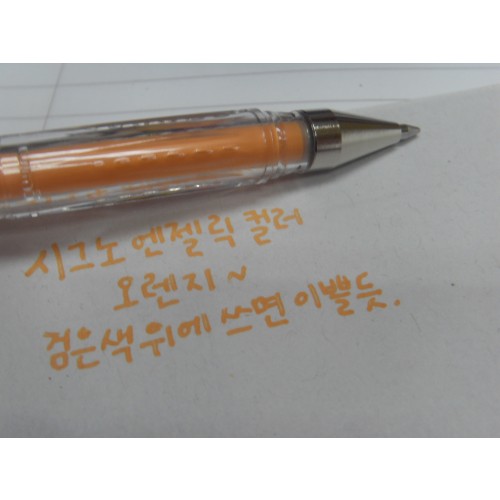 시그노 엔젤릭 컬러
오렌지~
검은색 위에 쓰면 이쁠듯.